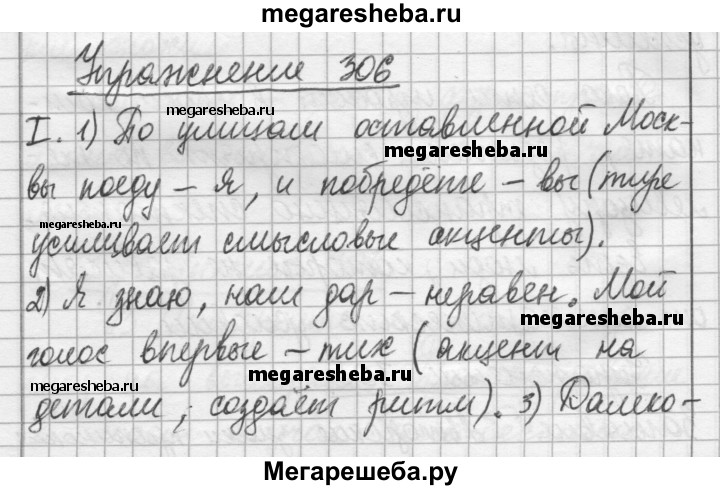 megaresheba.ru
Упражнение 306
megaresheba.ru
I. 1) По улицам оставленной Моск-
megaresheba.ru
вы поеду – я, и побредёте – вы (тире
megaresheba.ru
усиливает смысловые акценты).
2) Я знаю, наш дар – неравен. Мой
megaresheba.ru
голос впервые – тих (акцент на
megaresheba.ru
megaresheba.ru
детали, создаёт ритм). 3) Далеко-
Мегарешеба.ру